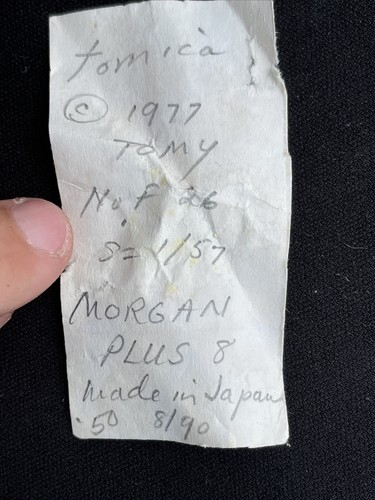 tomica
© 1977
TOMY
No. F 26
S= 1/57
MORGAN
PLUS 8
made in Japan
.50 8/90